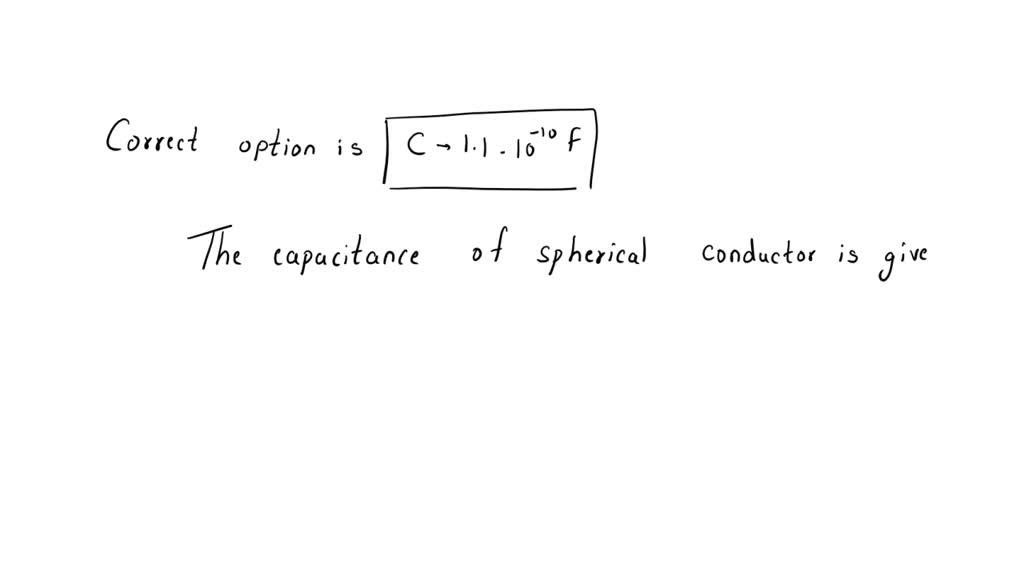 Correct option is C → 1.1 . 10⁻¹⁰ F
The capacitance of spherical conductor is give